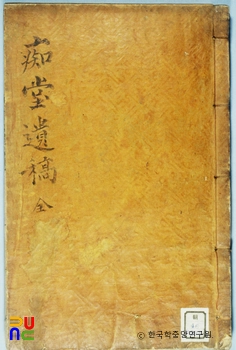 痴堂遺稿 全
ⓒ 한국학중앙연구원